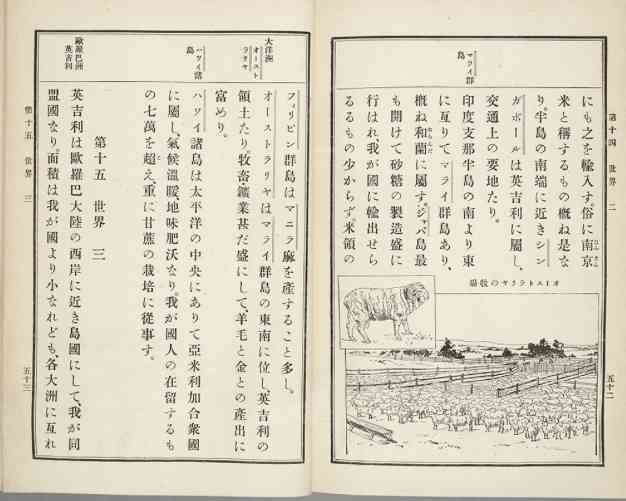 第十四 世界 二
五十二
マライ群
島
にも之を輸入す。俗に南京
米と稱するもの概ね是な
り。半島の南端に近きシン
ガポールは英吉利に屬し、
交通上の要地たり。
印度支那半島の南より東
に亙りてマライ群島あり、
概ね和蘭に屬す。ジャバ島最
も開けて砂糖の製造盛に
行はれ、我が國に輸出せら
るるもの少からず。米領の
オーストラリヤの牧場
大洋洲
オースト
ラリヤ
ハワイ諸
島
歐羅巴洲
英吉利
フィリピン群島はマニラ麻を産すること多し。
オーストラリヤはマライ群島の東南に位し、英吉利の
領土たり。牧畜鑛業甚だ盛にして、羊毛と金との産出に
富めり。
ハワイ諸島は太平洋の中央にありて亞米利加合衆國
に屬し、氣候溫暖地味肥沃なり。我が國人の在留するも
の七萬を超え、重に甘蔗の栽培に從事す。
第十五 世界 三
英吉利は歐羅巴大陸の西岸に近き島國にして、我が同
盟國なり。面積は我が國より小なれども、各大洲に亙れ
第十五 世界 三
五十三